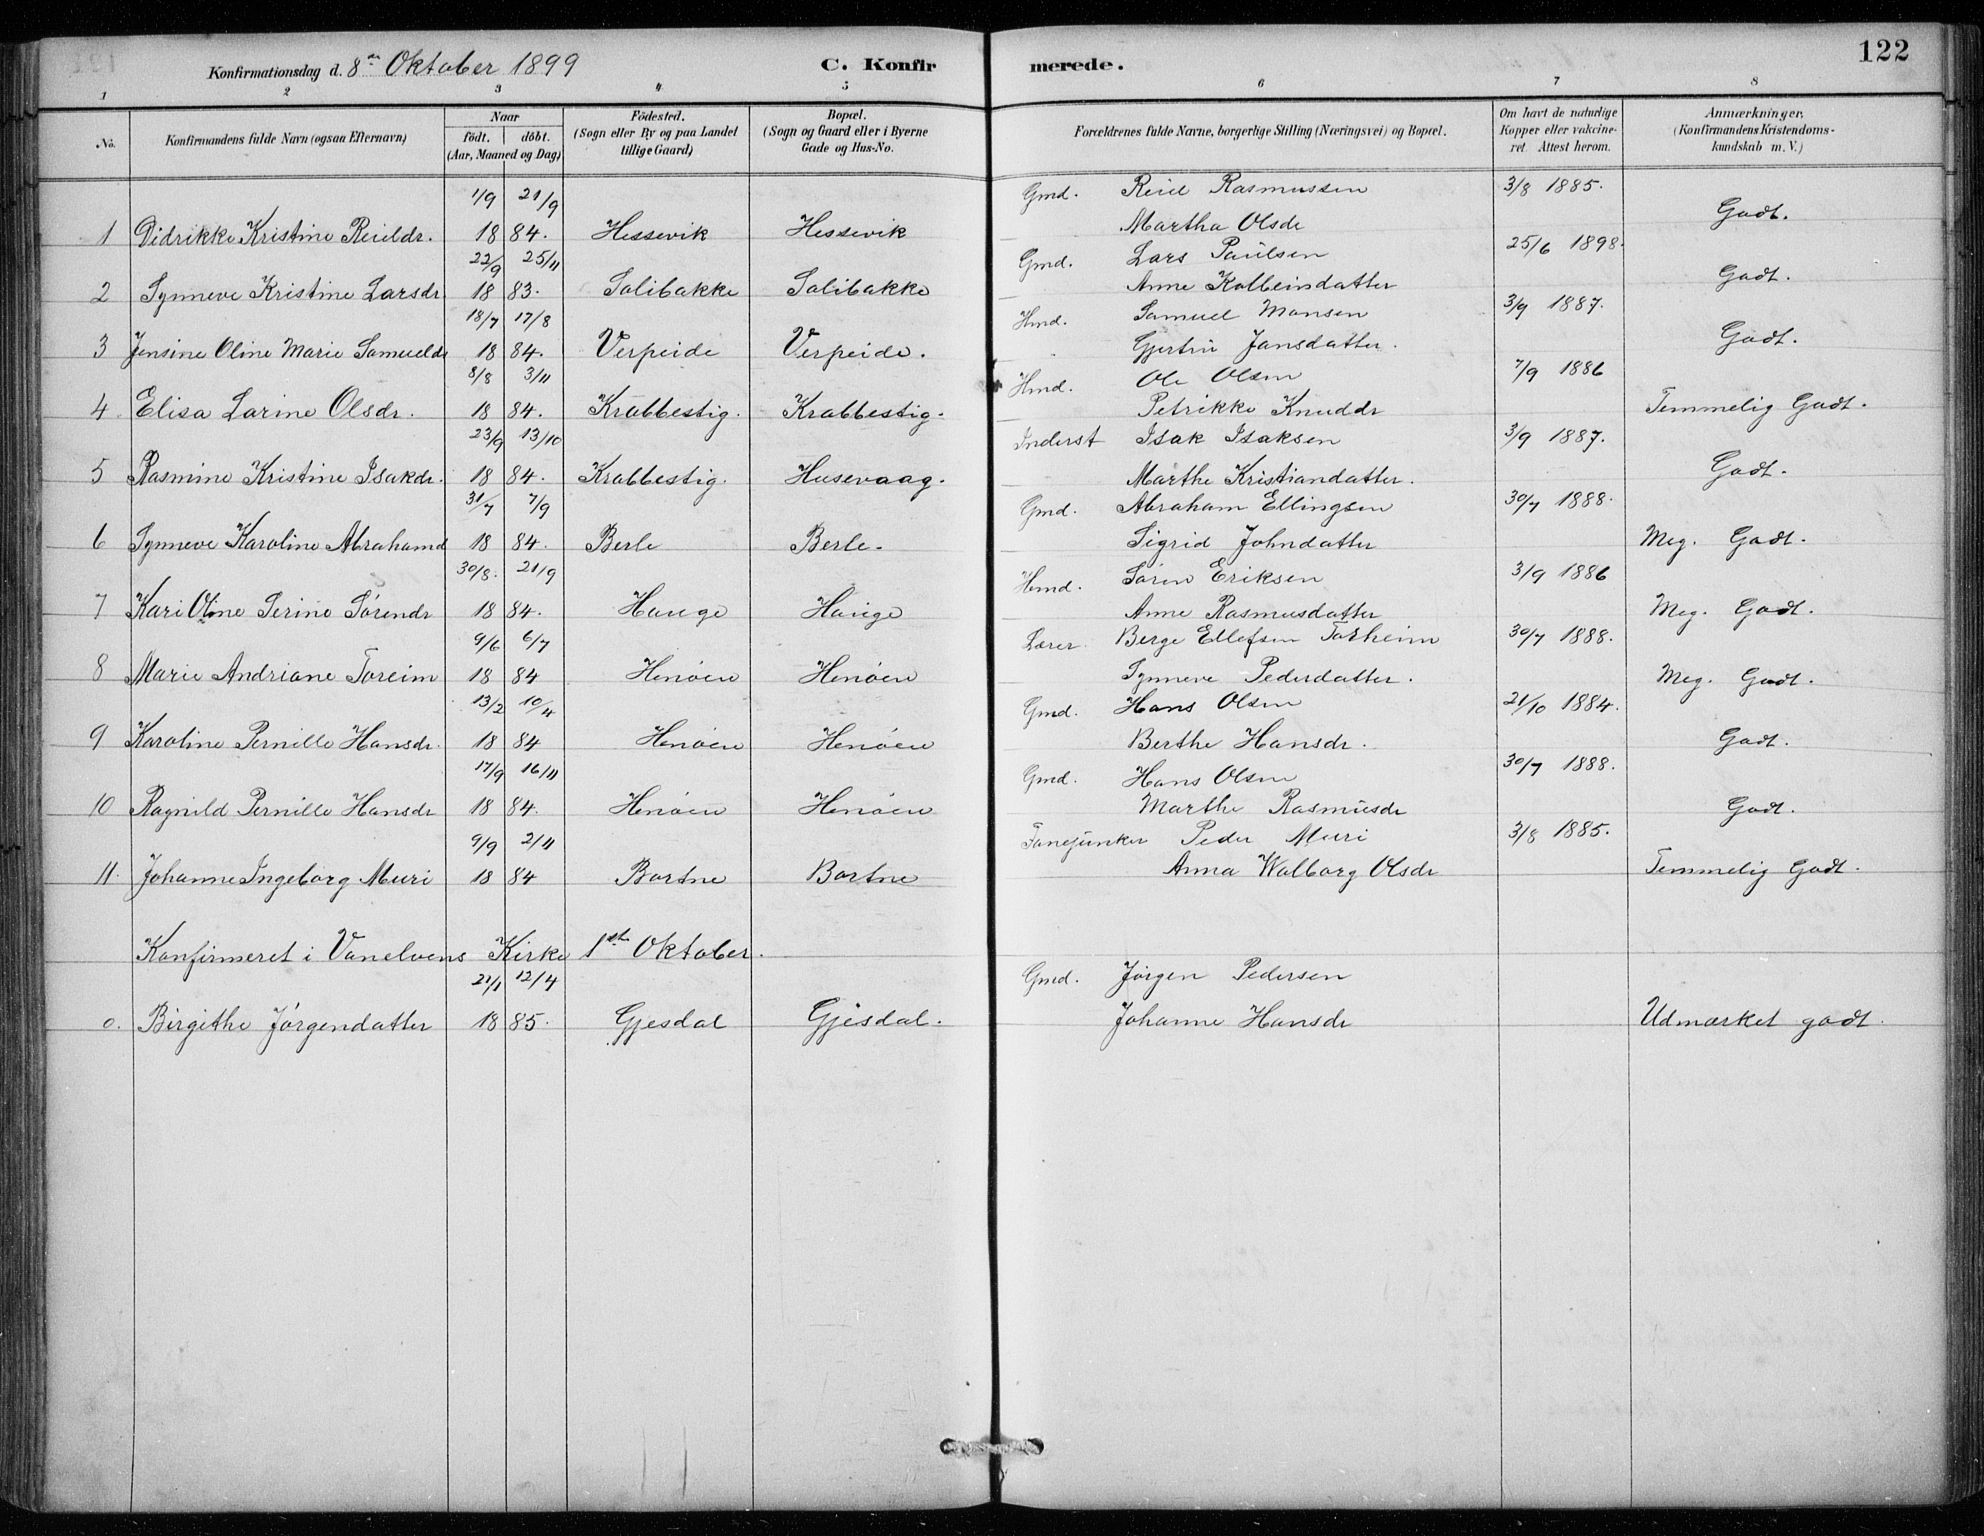 122
Konfirmationsdag d. 8de Oktober 1899 C. Konfirmerede.
1 2 3 4 5 6 7 8
No. Konfirmandens fulde Navn (ogsaa Efternavn) Naar födt. döbt. (Aar, Maaned og Dag) Födested. (Sogn eller By og paa Landet tillige Gaard) Bopæl. (Sogn og Gaard eller i Byerne Gade og Hus-No. Forældrenes fulde Navne, borgerlige Stilling (Næringsvei) og Bopæl. Om havt de naturlige Kopper eller vakcineret. Attest herom. Anmærkninger. (Konfirmandens Kristendomskundskab m. V.)
1/9 21/9 Gmd. Reiel Rasmussen 3/8 1885.
1 Didrikke Kristine Reieldr. 18 84. Hessevik Hessevik Martha Olsdr Godt.
22/9 25/11 Gmd. Lars Paulsen 25/6 1898.
2 Synneve Kristine Larsdr 18 83. Solibakke Solibakke Anne Kolbeindatter Godt.
18/7 17/8 Hmd. Samuel Monsen 3/9 1887.
3 Jensine Oline Marie Samueldr 18 84. Verpeide Verpeide. Gjertrü Jansdatter. Godt.
8/8 3/11 Hmd. Ole Olsen 7/9 1886
4 Elisa Larine Olsdr. 18 84. Krabbestig. Krabbestig. Petrikke Knuddr Temmelig Godt.
23/9 13/10 Inderst Isak Isaksen 3/9 1887.
5 Rasmine Kristine Isakdr. 18 84. Krabbestig. Husevaag. Marthe Kristiandatter. Godt.
31/7 7/9 Gmd. Abraham Ellingsen 30/7 1888.
6 Synneve Karoline Abrahamd 18 84. Berle Berle. Sigrid Johndatter Meg. Godt.
30/8. 21/9 Hmd. Sören Eriksen 3/9 1886
7 Kari Oline Serine Sörendr 18 84. Hauge Hauge Anne Rasmusdatter Meg. Godt.
9/6 6/7 Lærer Berge Ellefsen Torheim 30/7 1888.
8 Marie Andriane Toreim 18 84 Henöen Henöen Synneve Pederdatter. Meg. Godt.
13/2 10/4 Gmd. Hans Olsen 21/10 1884.
9 Karoline Pernille Hansdr. 18 84 Henöen Henöen Berthe Hansdr. Godt.
17/9 16/11 Gmd. Hans Olsen 30/7 1888.
10 Ragnild Pernille Hansdr 18 84. Henöen Henöen Marthe Rasmusdr Godt.
9/9 2/11 Fanejunker Peder Muri 3/8 1885.
11. Johanne Ingeborg Muri 18 84 Bortne Bortne Anna Walborg Olsdr Temmelig Godt.
Konfirmeret i Vanelvens Kirke 1st Oktober.
21/1 12/4 Gmd. Jörgen Pedersen
0. Birgithe Jörgendatter 18 85. Gjesdal Gjesdal. Johanne Hansdr Udmærket godt.